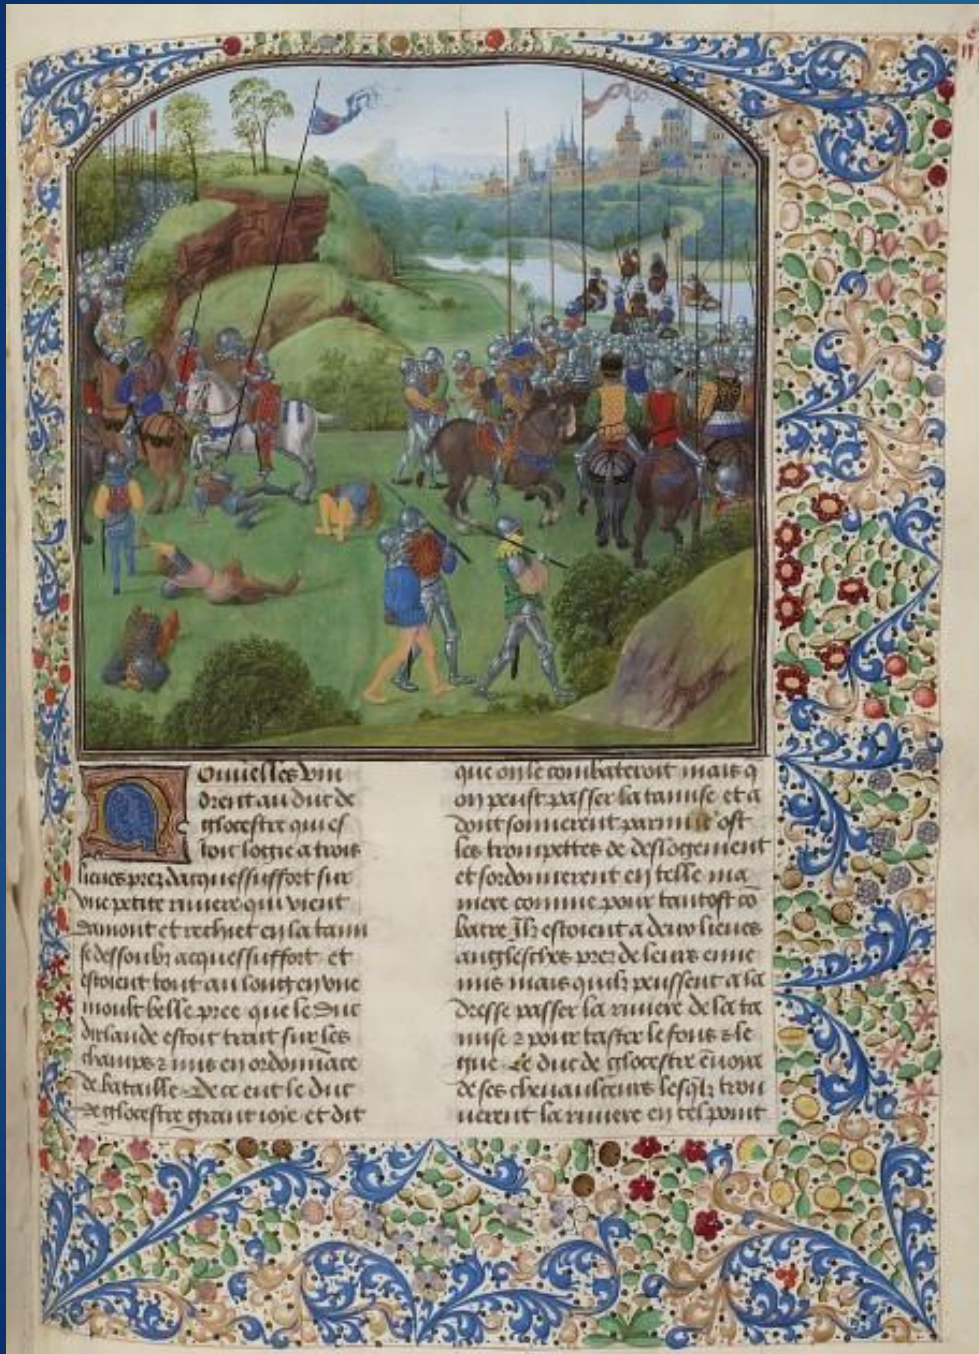 Nouvelles vin
drent au duc de
glocestre qui es
toit logie a trois
lieues prez dacquessuffort sur
vne petite riuiere qui vient
damont et rechiet en la tami
se dessoubz acquessuffort et
estoient tout au long en vne
moult belle pree que le duc
dirlande estoit trait sur les
champs et mis en ordonnãce
de bataille De ce eut le duc
de glocestre grant ioie et dit
que on le combateroit mais q̃
on peust passer la tamise et a
dont sonnerent parmi l'ost
les trompettes de deslogement
et sordonnerent en telle ma
niere comme pour tantost cõ
batre Ilz estoient a deux lieues
anglesches prez de leurs enne
mis mais quilz peussent a la
dresse passer la riuiere de la ta
mise et pour taster le fons et le
gue le duc de glocestre ẽuoya
de ses cheuaulceurs lesq̃lz trou
uerent la riuiere en tel point